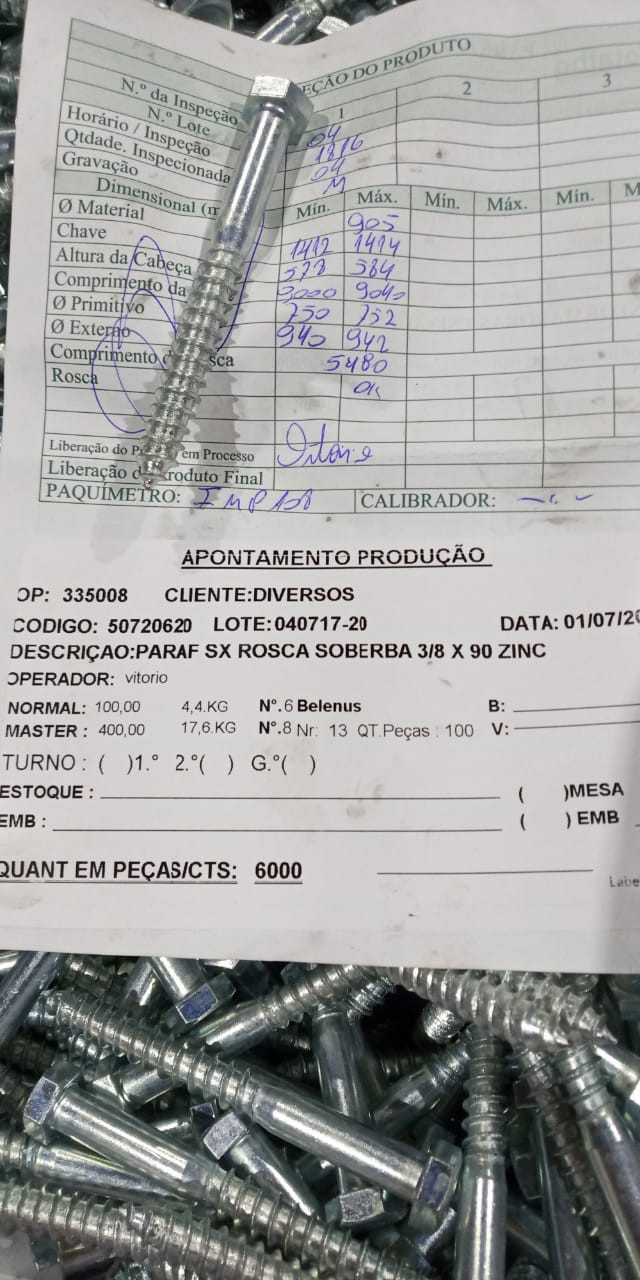 EÇÃO DO PRODUTO
N.º da Inspeção 1 2 3
N.º Lote 04
Horário / Inspeção 1816
Qtdade. Inspecionada 04
Gravação M
Dimensional Mín. Máx. Mín. Máx. Mín. M
Ø Material 905
Chave 1412 1414
Altura da Cabeça 573 584
Comprimento da 9040
Ø Primitivo 750 752
Ø Externo 940 942
Comprimento sca 5480
Rosca OK
Liberação do P em Processo
Liberação d roduto Final
PAQUÍMETRO: CALIBRADOR:
APONTAMENTO PRODUÇÃO
OP: 335008 CLIENTE:DIVERSOS
CODIGO: 50720620 LOTE:040717-20 DATA: 01/07/20
DESCRIÇAO:PARAF SX ROSCA SOBERBA 3/8 X 90 ZINC
OPERADOR: vitorio
NORMAL: 100,00 4,4.KG N°.6 Belenus B:
MASTER : 400,00 17,6.KG N°.8 Nr: 13 QT.Peças : 100 V:
TURNO : ( )1.° 2.°( ) G.°( )
ESTOQUE : ( )MESA
EMB : ( ) EMB
QUANT EM PEÇAS/CTS: 6000
Labe